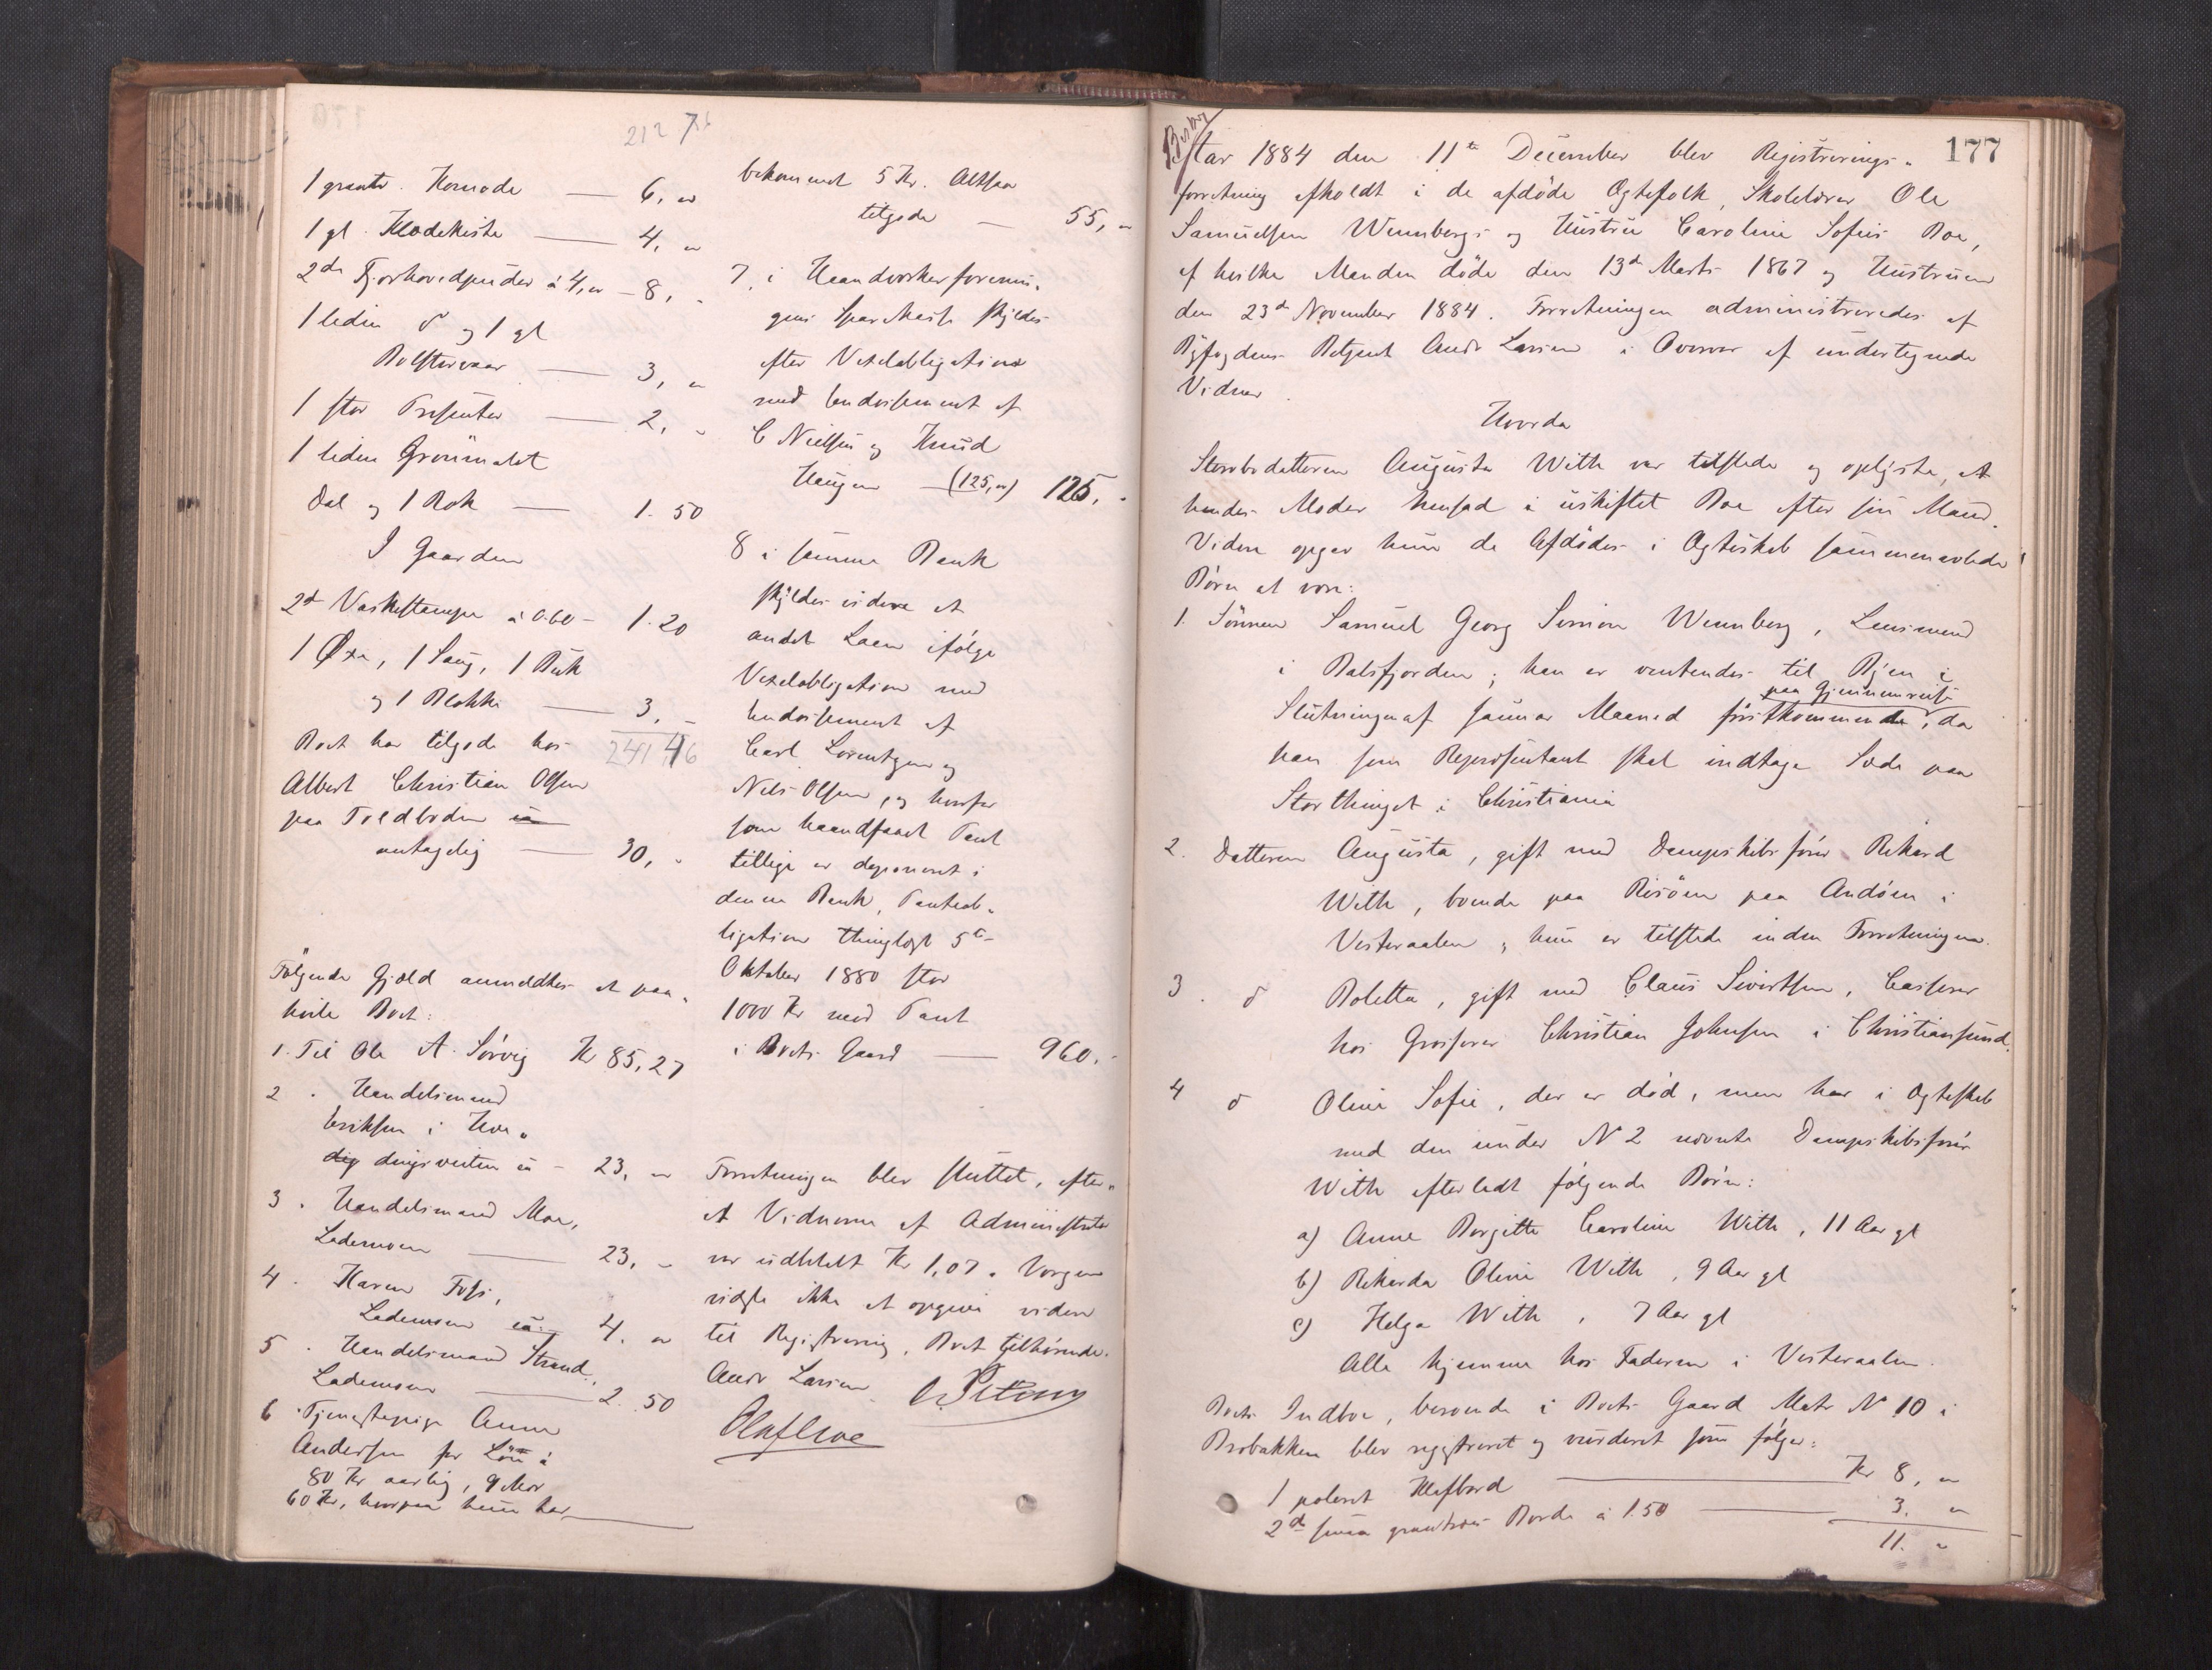 212 76
1 grantr. Komode — 6, "
1 gl. Klædekiste — 4, "
2de Fjørhovedpuder à 4, " — 8, "
1 liden do og 1 gl
Bolstervaar — 3, "
1 stor Presenter — 2, "
1 liden Grönmalet
Dal og 1 Rok — 1. 50
I Gaarden
2de Vaskestampe à 0.60 — 1. 20
1 Øxe, 1 Saug, 1 Buk
og 1 Blokke — 3, "
241 46
Boet har tilgode hos
Albert Christian Olsen
paa Toldboden
antagelig — 30, "
Følgende Gjæld anmeldtes at paa„
hvile Boet:
1. Til Ole A. Sörvig Kr 85,27
2 " Handelsmand
Eriksen i Hoe„
dig dingsveiten ca — 23, "
3 " Handelsmand Moe,
Lademoen — 23, "
4 " Karen Foss,
Lademoen ca: 4. "
5 " Handelsmand Strand,
Lademoen — 2. 50
6 " Tjenestepige Anna
Andersen for Lön à
80 Kr aarlig, 9 Mdr
60 Kr, hvorpaa hun har
bekommet 5 Kr. Altsaa
tilgode — 55, "
7. i Haandværkerforenin„
gens Sparekasse skyldes
efter Vexelobligation
med Endossement af
C Nielsen og Knud
Haugen — (125, ") 125, "
8 i samme Bank
skyldes videre et
andet Laan ifölge
Vexelobligation med
Endossement af
Carl Lorentzen og
Nils Olsen, og hvorfor
som haandfaaet Pant
tillige er deponeret i
denne Bank, Panteob„
ligation thinglyst 5te
Oktober 1880 stor
1000 Kr med Pant
i Boets Gaard — 960. "
Forretningen blev sluttet, efter„
at Vidnerne af Administrator
var udbetalt Kr 1,07. Værgen
vidste ikke at opgive videre
til Registrering, Boet tilhørende.
Andr Larsen
177
Aar 1884 den 11te December blev Registrerings„
forretning afholdt i de afdöde Ægtefolk, Skolelærer Ole
Samuelsen Wennbergs og Hustru Caroline Sofies Boe,
af hvilke Manden döde den 13de Marts 1867 og Hustruen
den 23de November 1884. Forretningen administreredes af
Byfogdens Betjent Andr Larsen i Overvær af undertegnede
Vidner.
Hvorda
Stervbodatteren Augusta With var tilstede og oplyste, at
hendes Moder hensad i uskiftet Boe efter sin Mand.
Videre opgav hun de Afdödes i Ægteskab sammenavlede
Börn at være:
1. Sönnen Samuel Georg Simon Wennberg, Lensmand
i Balsfjorden; han er ventendes til Byen i
paa Gjennemreise
Slutningen af Januar Maaned förstkommende, da
han som Repræsentant skal indtage Sæde paa
Storthinget i Christiania
2. Datteren Augusta, gift med Dampskibsförer Rikard
With, boende paa Risöen paa Andöen i
Vesteraalen; hun er tilstede under Forretningen.
3. do Boletta, gift med Claus Sivertsen, Casserer
hos Grosserer Christian Johnsen i Christiansund.
4 do Oline Sofie, der er död, men har i Ægteskab
med den under N 2 nævnte Dampskibsförer
With efterladt følgende Börn:
a) Anne Borgitte Caroline With, 11 Aar gl
b) Rikarda Oline With, 9 Aar gl
c) Helga With, 7 Aar gl
Alle hjemme hos Faderen i Vesteraalen.
Boets Indboe, beroende i Boets Gaard Matr N 10 i
Brobakken blev registreret og vurderet som følger:
1 poleret Klafbord — Kr 8, "
2de smaa grantræs Borde à 1.50 — 3. "
11. "